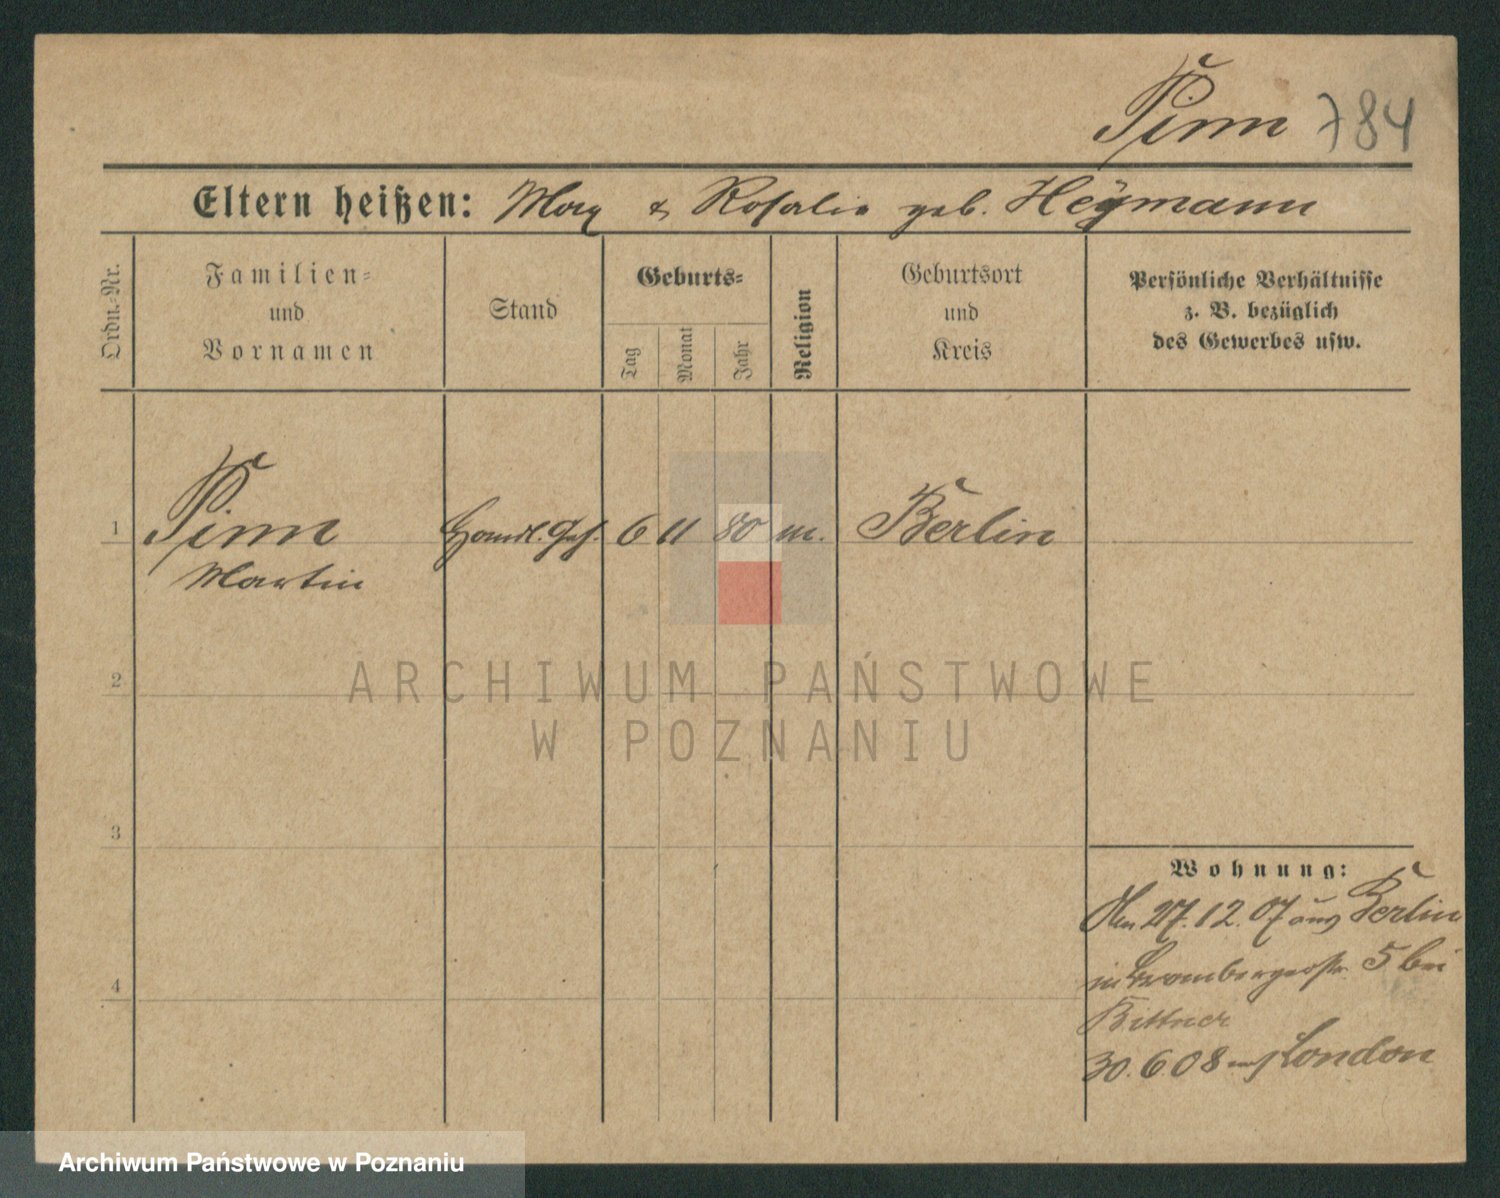 Pinn 784
Eltern heißen: Max & Rosalie geb. Heymann
Ordn.-Nr.
Familien-
und
Vornamen
Stand
Geburts-
Tag
Monat
Jahr
Religion
Geburtsort
und
Kreis
Persönliche Verhältnisse
z. B. bezüglich
des Gewerbes usw.
1 Pinn Handl. Geh. 6 11 80 m. Berlin
Martin
2
ARCHIWUM PAŃSTWOWE
W POZNANIU
3
Wohnung:
27.12.07 aus Berlin
in 5 bei
4
Bittner
30.6.08 London
Archiwum Państwowe w Poznaniu